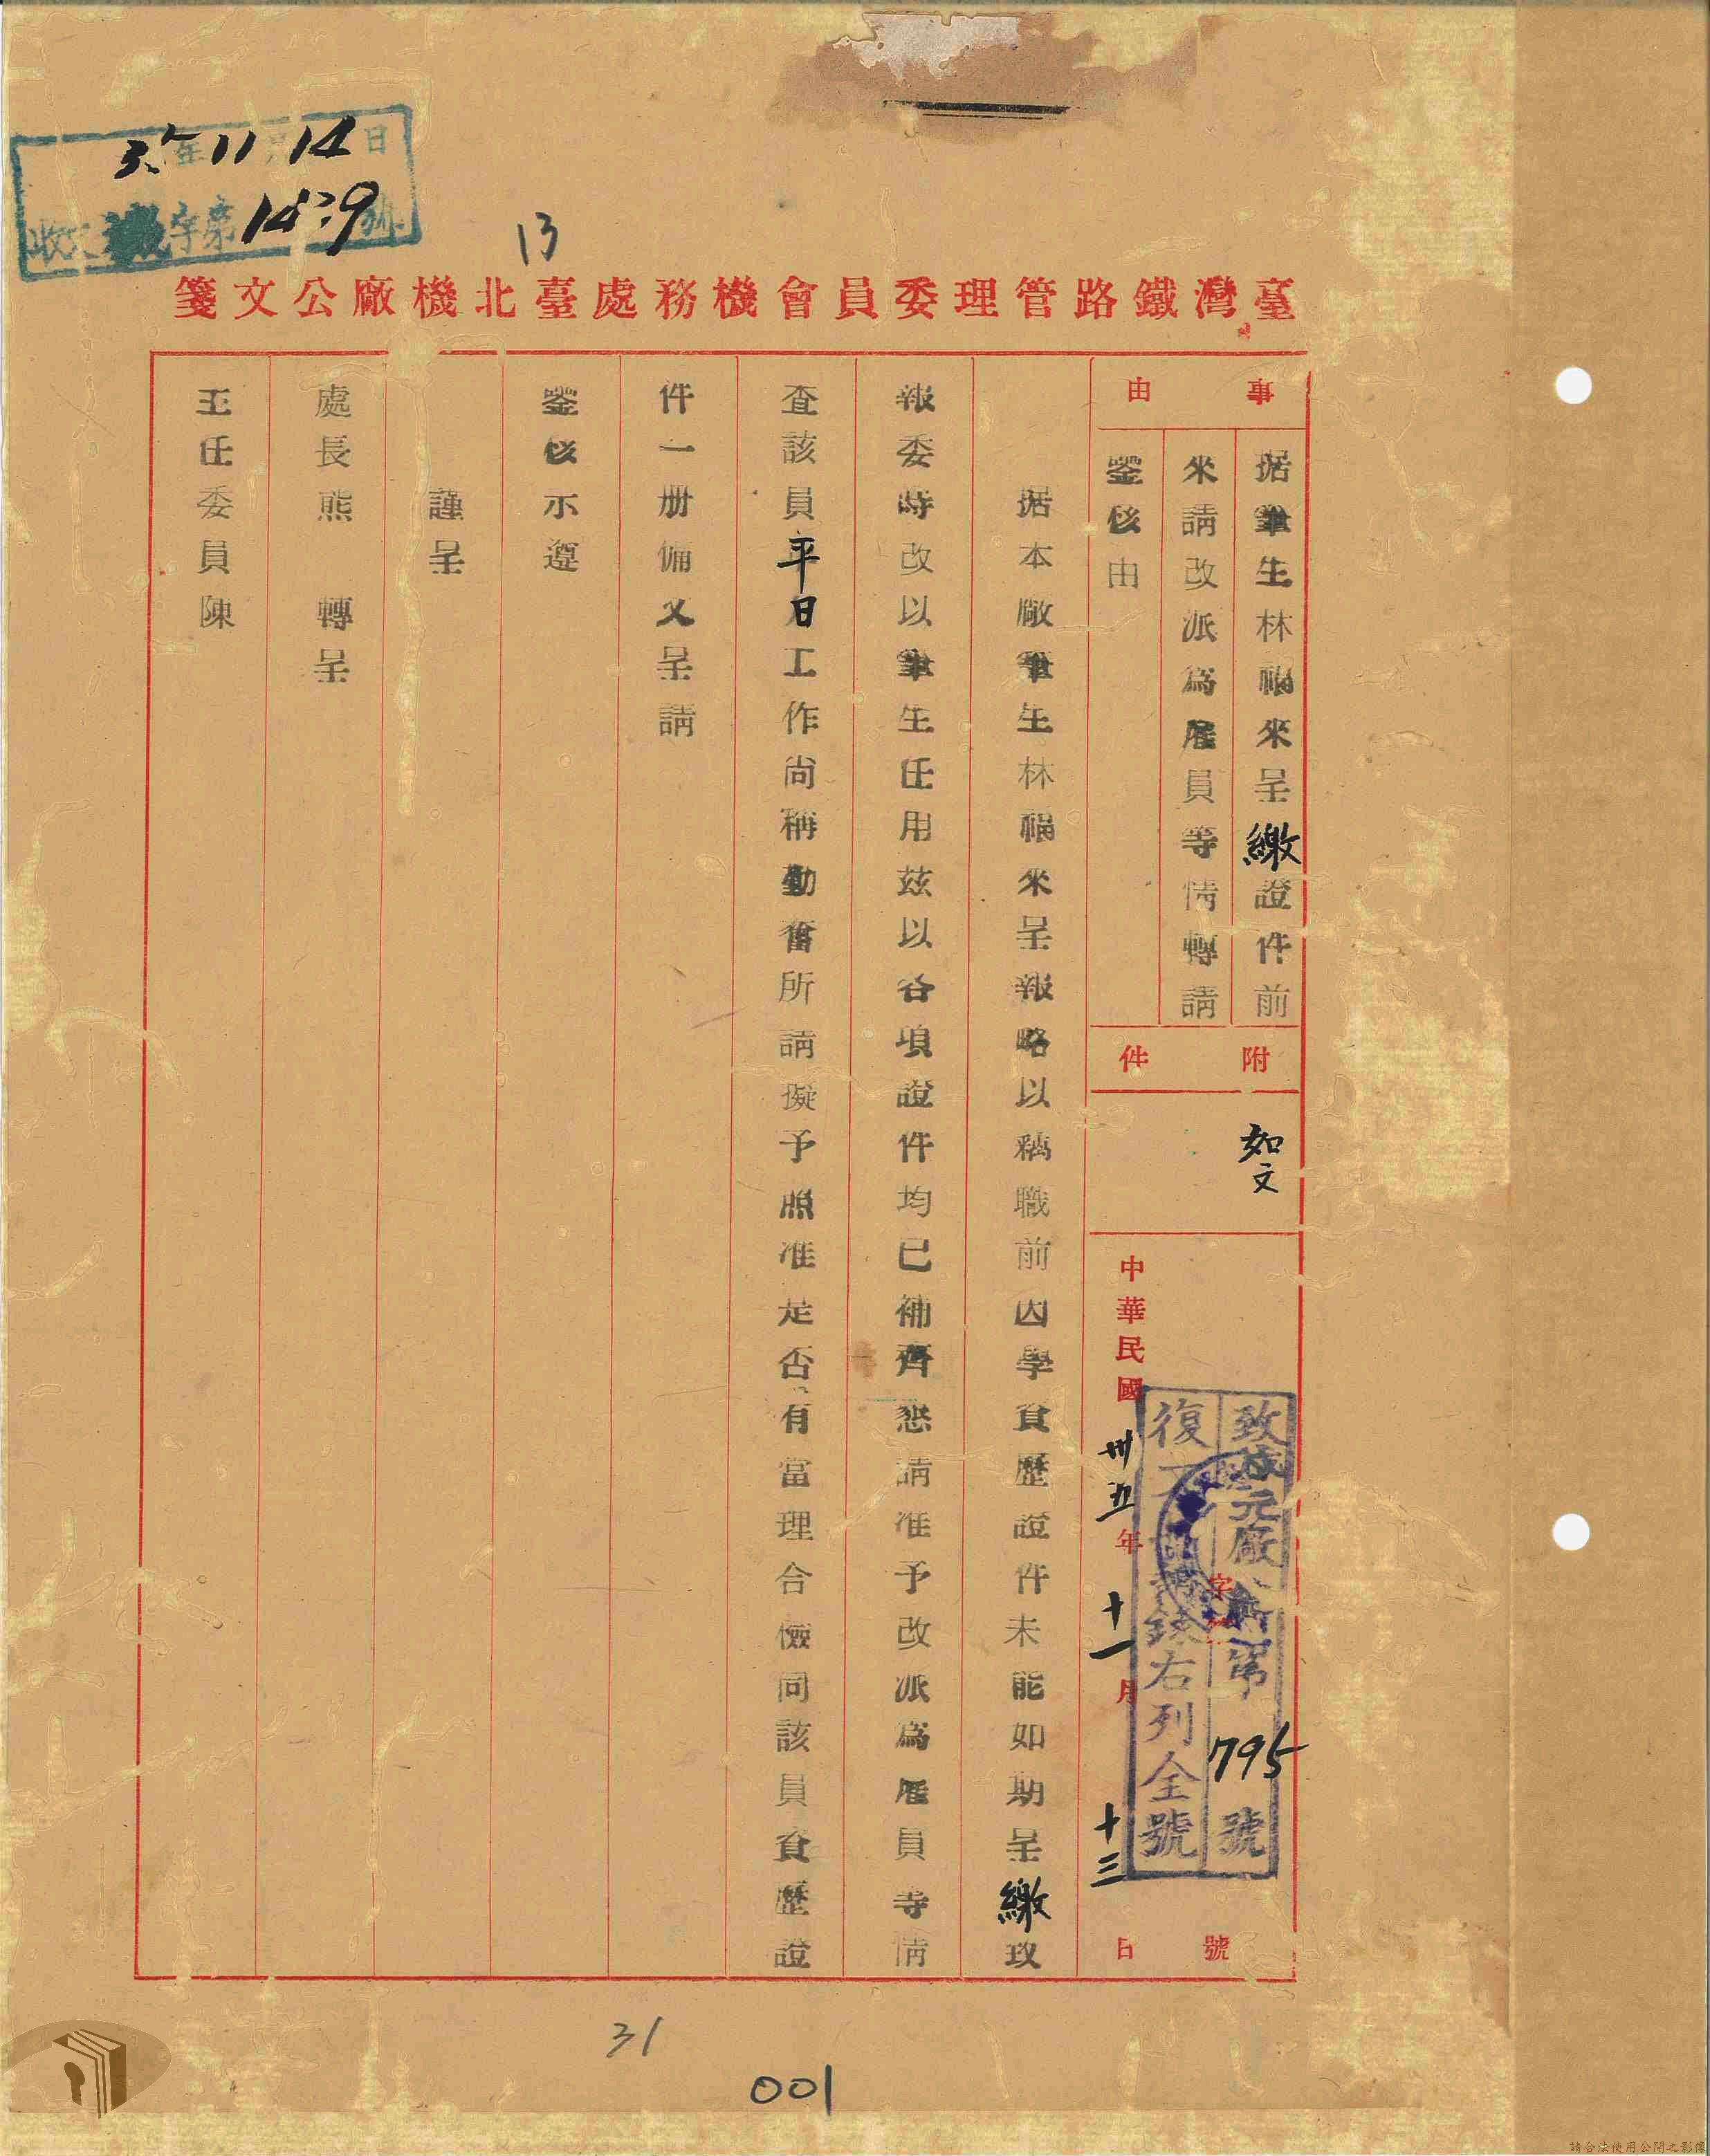 年11月14日
收文機字第14 9號
13
臺灣鐵路管理委員會機務處臺北機廠公文箋
事由
据筆生林福來呈繳證件前
來請改派為雇員等情轉請
鉴核由
附件
如文
致 元廠 第795號
復文 錄右列全號
字 號
中華民國卅五年十一月十三日
据本廠筆生林福來呈報略以稱職前因學資歷證件未能如期呈繳致
報委時改以筆生任用玆以各項證件均已補齊懇請准予改派為雇員等情
查該員平日工作尚稱勤奮所請擬予照准是否有當理合檢同該員資歷證
件一册備文呈請
鉴核示遵
謹呈
處長熊 轉呈
主任委員陳
31
001
請合法使用公開之影像